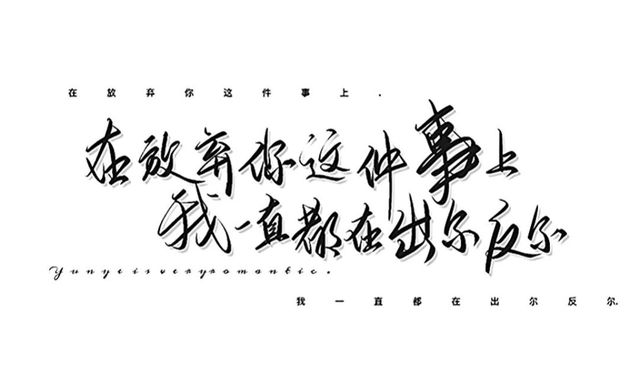 在放弃你这件事上.
在放弃你这件事上
我一直都在出尔反尔
Yunyeisveryromantic.
我一直都在出尔反尔.